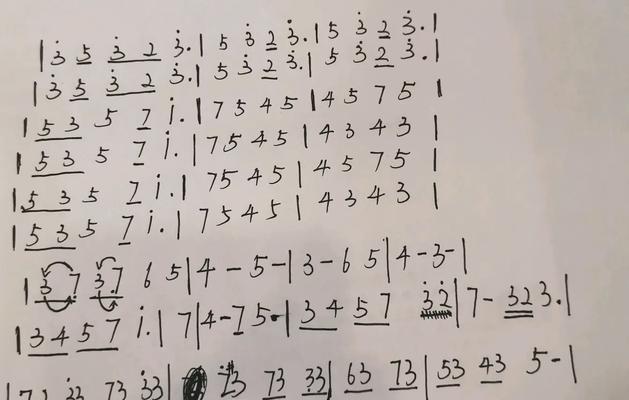 | 3̇ 5 3̇ 2 3̇. | 5 3̇ 2 3̇. | 5 3̇ 2 3̇. |
| 3̇ 5 3̇ 2 3̇. | 5 3̇ 2 3̇. | 5 3̇ 2 3̇. |
| 5 3 5 7 i. | 7 5 4 5 | 4 5 7 5 |
| 5 3 5 7 i. | 7 5 4 5 | 4 3 4 3 |
| 5 3 5 7 i. | 7 5 4 5 | 4 5 7 5 |
| 5 3 5 7 i. | 7 5 4 5 | 4 3 4 3 |
| 3 7 3 7 6 5 | 4 - 5 - | 3 - 6 5 | 4 - 3 - |
| 3 4 5 7 i. | 7 | 4 - 7 5 - | 3 4 5 7 3̇ 2̇ | 7 - 3 2 3. |
33 73 33 | 73 73 33 | 63 73 | 53 43 5 - |